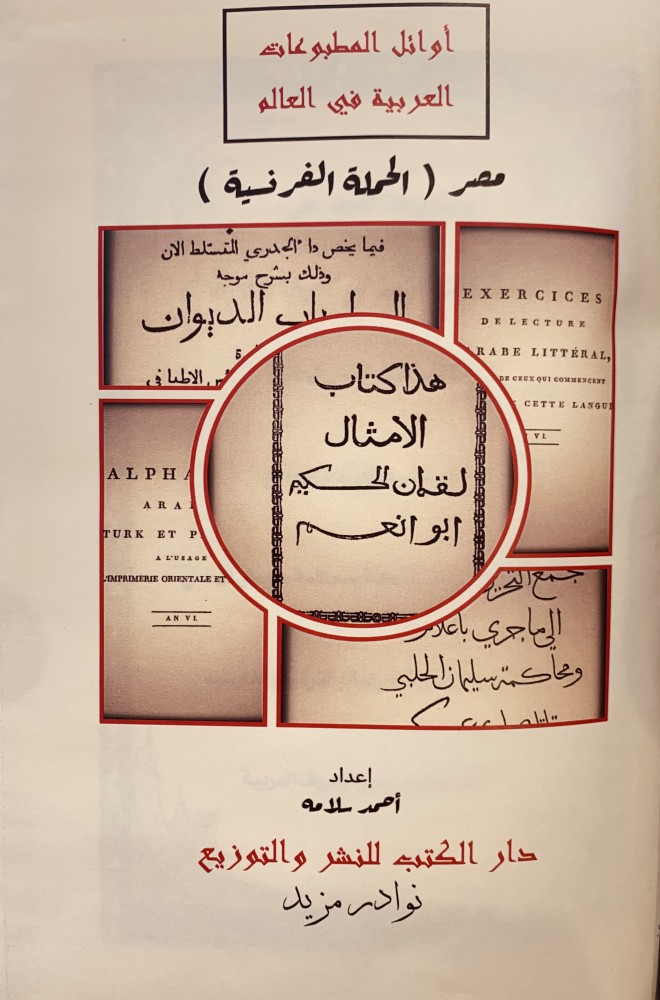 أوائل المطبوعات
العربية في العالم
مصر ( الحملة الفرنسية )
فيما يخص داء الجدري المتسلط الان
وذلك بشرح موجه
الديوان
EXERCICES
DE LECTURE
ARABE LITTÉRAL,
DE CEUX QUI COMMENCENT
CETTE LANGUE
VI.
هذا كتاب
الامثال
لقمان الحكيم
ابو انعم
ALPHA
ARA
TURK ET P
A L'USAGE
L'IMPRIMERIE ORIENTALE ET
AN VI.
جمع التحرير
الي ما جري باعلام
ومحاكمة سليمان الحلبي
إعداد
أحمد سلامه
دار الكتب للنشر والتوزيع
نوادر مزيد